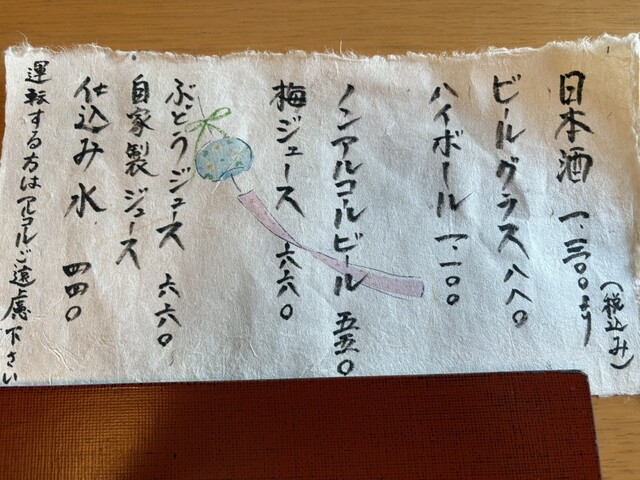 (税込み)
日本酒 一、三〇〇より
ビールグラス 八八〇
ハイボール 一、一〇〇
ノンアルコールビール 五五〇
梅ジュース 六六〇
ぶとうジュース 六六〇
自家製ジュース
仕込み水 四四〇
運転する方はアルコールご遠慮下さい